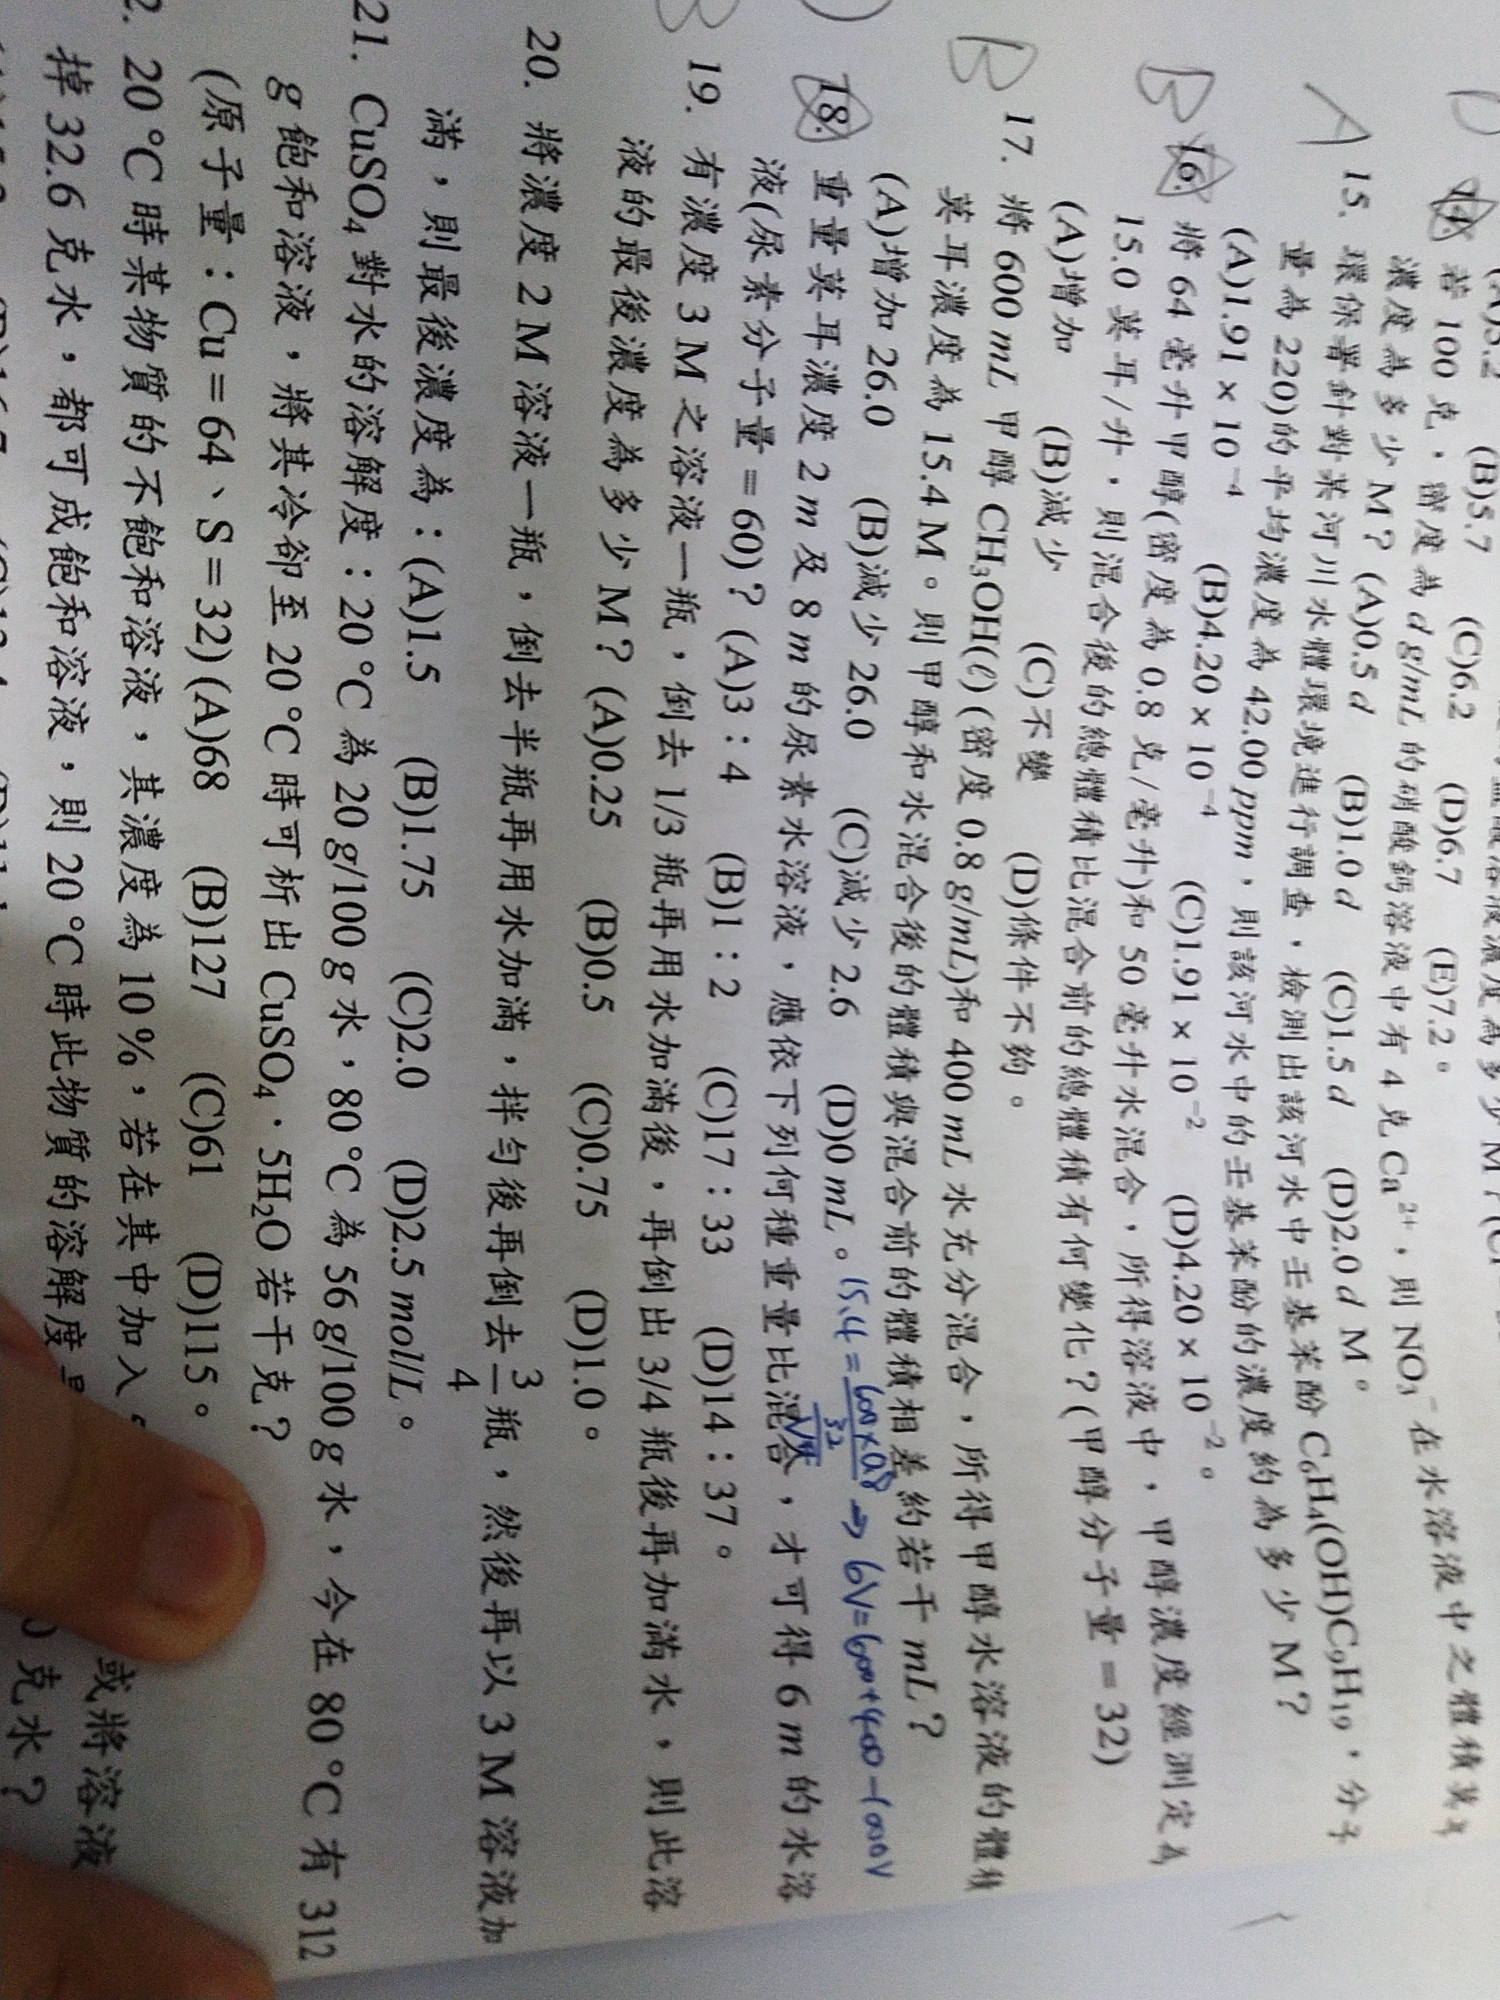 (A)5.2 (B)5.7 (C)6.2 (D)6.7 (E)7.2。
D 14. 若 100 克,密度為 d g/mL 的硝酸鈣溶液中有 4 克 Ca²⁺,則 NO₃⁻ 在水溶液中之體積莫耳
濃度為多少 M?(A)0.5 d (B)1.0 d (C)1.5 d (D)2.0 d M。
A 15. 環保署針對某河川水體環境進行調查,檢測出該河水中壬基苯酚 C₆H₄(OH)C₉H₁₉,分子
量為 220)的平均濃度為 42.00 ppm,則該河水中的壬基苯酚的濃度約為多少 M?
(A)1.91 × 10⁻⁴ (B)4.20 × 10⁻⁴ (C)1.91 × 10⁻² (D)4.20 × 10⁻²。
B 16. 將 64 毫升甲醇(密度為 0.8 克/毫升)和 50 毫升水混合,所得溶液中,甲醇濃度經測定為
15.0 莫耳/升,則混合後的總體積比混合前的總體積有何變化?(甲醇分子量=32)
(A)增加 (B)減少 (C)不變 (D)條件不夠。
B 17. 將 600 mL 甲醇 CH₃OH(ℓ)(密度 0.8 g/mL)和 400 mL 水充分混合,所得甲醇水溶液的體積
莫耳濃度為 15.4 M。則甲醇和水混合後的體積與混合前的體積相差約若干 mL?
(A)增加 26.0 (B)減少 26.0 (C)減少 2.6 (D)0 mL。15.4 = 600×0.8/32 / V → 6V=600+400-1000V
18. 重量莫耳濃度 2 m 及 8 m 的尿素水溶液,應依下列何種重量比混合,才可得 6 m 的水溶
液(尿素分子量=60)?(A)3:4 (B)1:2 (C)17:33 (D)14:37。
B 19. 有濃度 3 M 之溶液一瓶,倒去 1/3 瓶再用水加滿後,再倒出 3/4 瓶後再加滿水,則此溶
液的最後濃度為多少 M?(A)0.25 (B)0.5 (C)0.75 (D)1.0。
20. 將濃度 2 M 溶液一瓶,倒去半瓶再用水加滿,拌勻後再倒去 3/4 瓶,然後再以 3 M 溶液加
滿,則最後濃度為:(A)1.5 (B)1.75 (C)2.0 (D)2.5 mol/L。
21. CuSO₄ 對水的溶解度:20 °C 為 20 g/100 g 水,80 °C 為 56 g/100 g 水,今在 80 °C 有 312
g 飽和溶液,將其冷卻至 20 °C 時可析出 CuSO₄.5H₂O 若干克?
(原子量:Cu=64、S=32)(A)68 (B)127 (C)61 (D)115。
2. 20 °C 時某物質的不飽和溶液,其濃度為 10 %,若在其中加入 或將溶液
掉 32.6 克水,都可成飽和溶液,則 20 °C 時此物質的溶解度 克水?